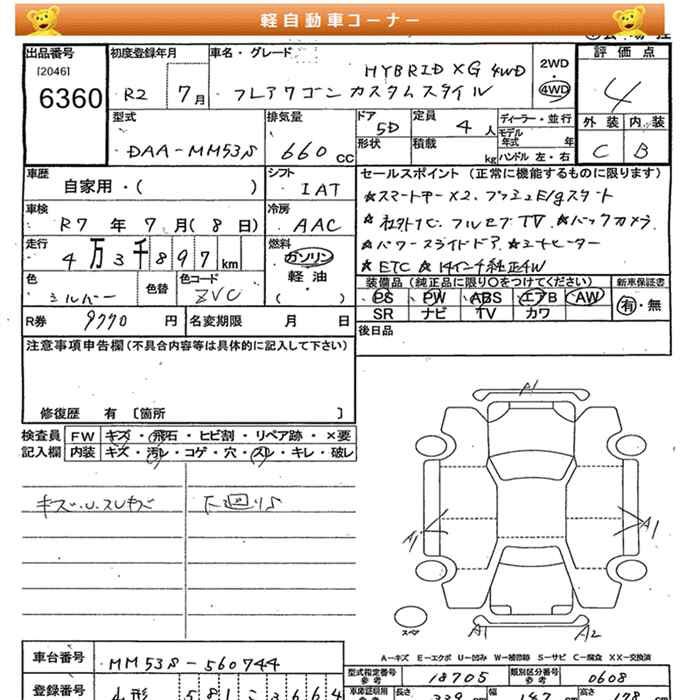 軽自動車コーナー
出品番号 初度登録年月 車名・グレード 評価点
[2046] 6360 R2 7月 HYBRID XG 4WD 2WD 4WD 4
フレアワゴン カスタムスタイル
型式 排気量 ドア 定員 ディーラー・並行 外装 内装
DAA-MM53S 660cc 5D 4人 モデル年式 年 C B
形状 積載 kg ハンドル 左・右
車歴 シフト セールスポイント (正常に機能するものに限ります)
自家用・( ) IAT ★スマートキーX2、プッシュE/gスタート
車検 冷房 ★社外ナビ、フルセグTV ★バックカメラ
R7年 7月(8日) AAC ★パワースライドドア ★シートヒーター
走行 燃料 ★ETC ★14インチ純正AW
4万3千897km ガソリン 軽油
色 色替 色コード 装備品 (純正品に限り○をつけてください) 新車保証書
シルバー ZVC ( ) PS PW ABS エアB AW 有・無
SR ナビ TV カワ
R券 9770円 名変期限 月 日 後日品
注意事項申告欄(不具合内容等は具体的に記入して下さい)
修復歴 有 〔箇所 〕
検査員 FW キズ・飛石・ヒビ割・リペア跡・×要
記入欄 内装 キズ・汚レ・コゲ・穴・スレ・キレ・破レ
キズ・U・スレキズ 下廻りS
A1
A1 A1
スペア A1 A2
A-キズ E-エクボ U-凹み W-補修跡 S-サビ C-腐食 XX-交換済
車台番号 MM53S-560744
型式指定番号 参考 18705 類別区分番号 参考 0608
登録番号 車庫証明取用 参考 長さ 339 幅 147 高さ 178 cm